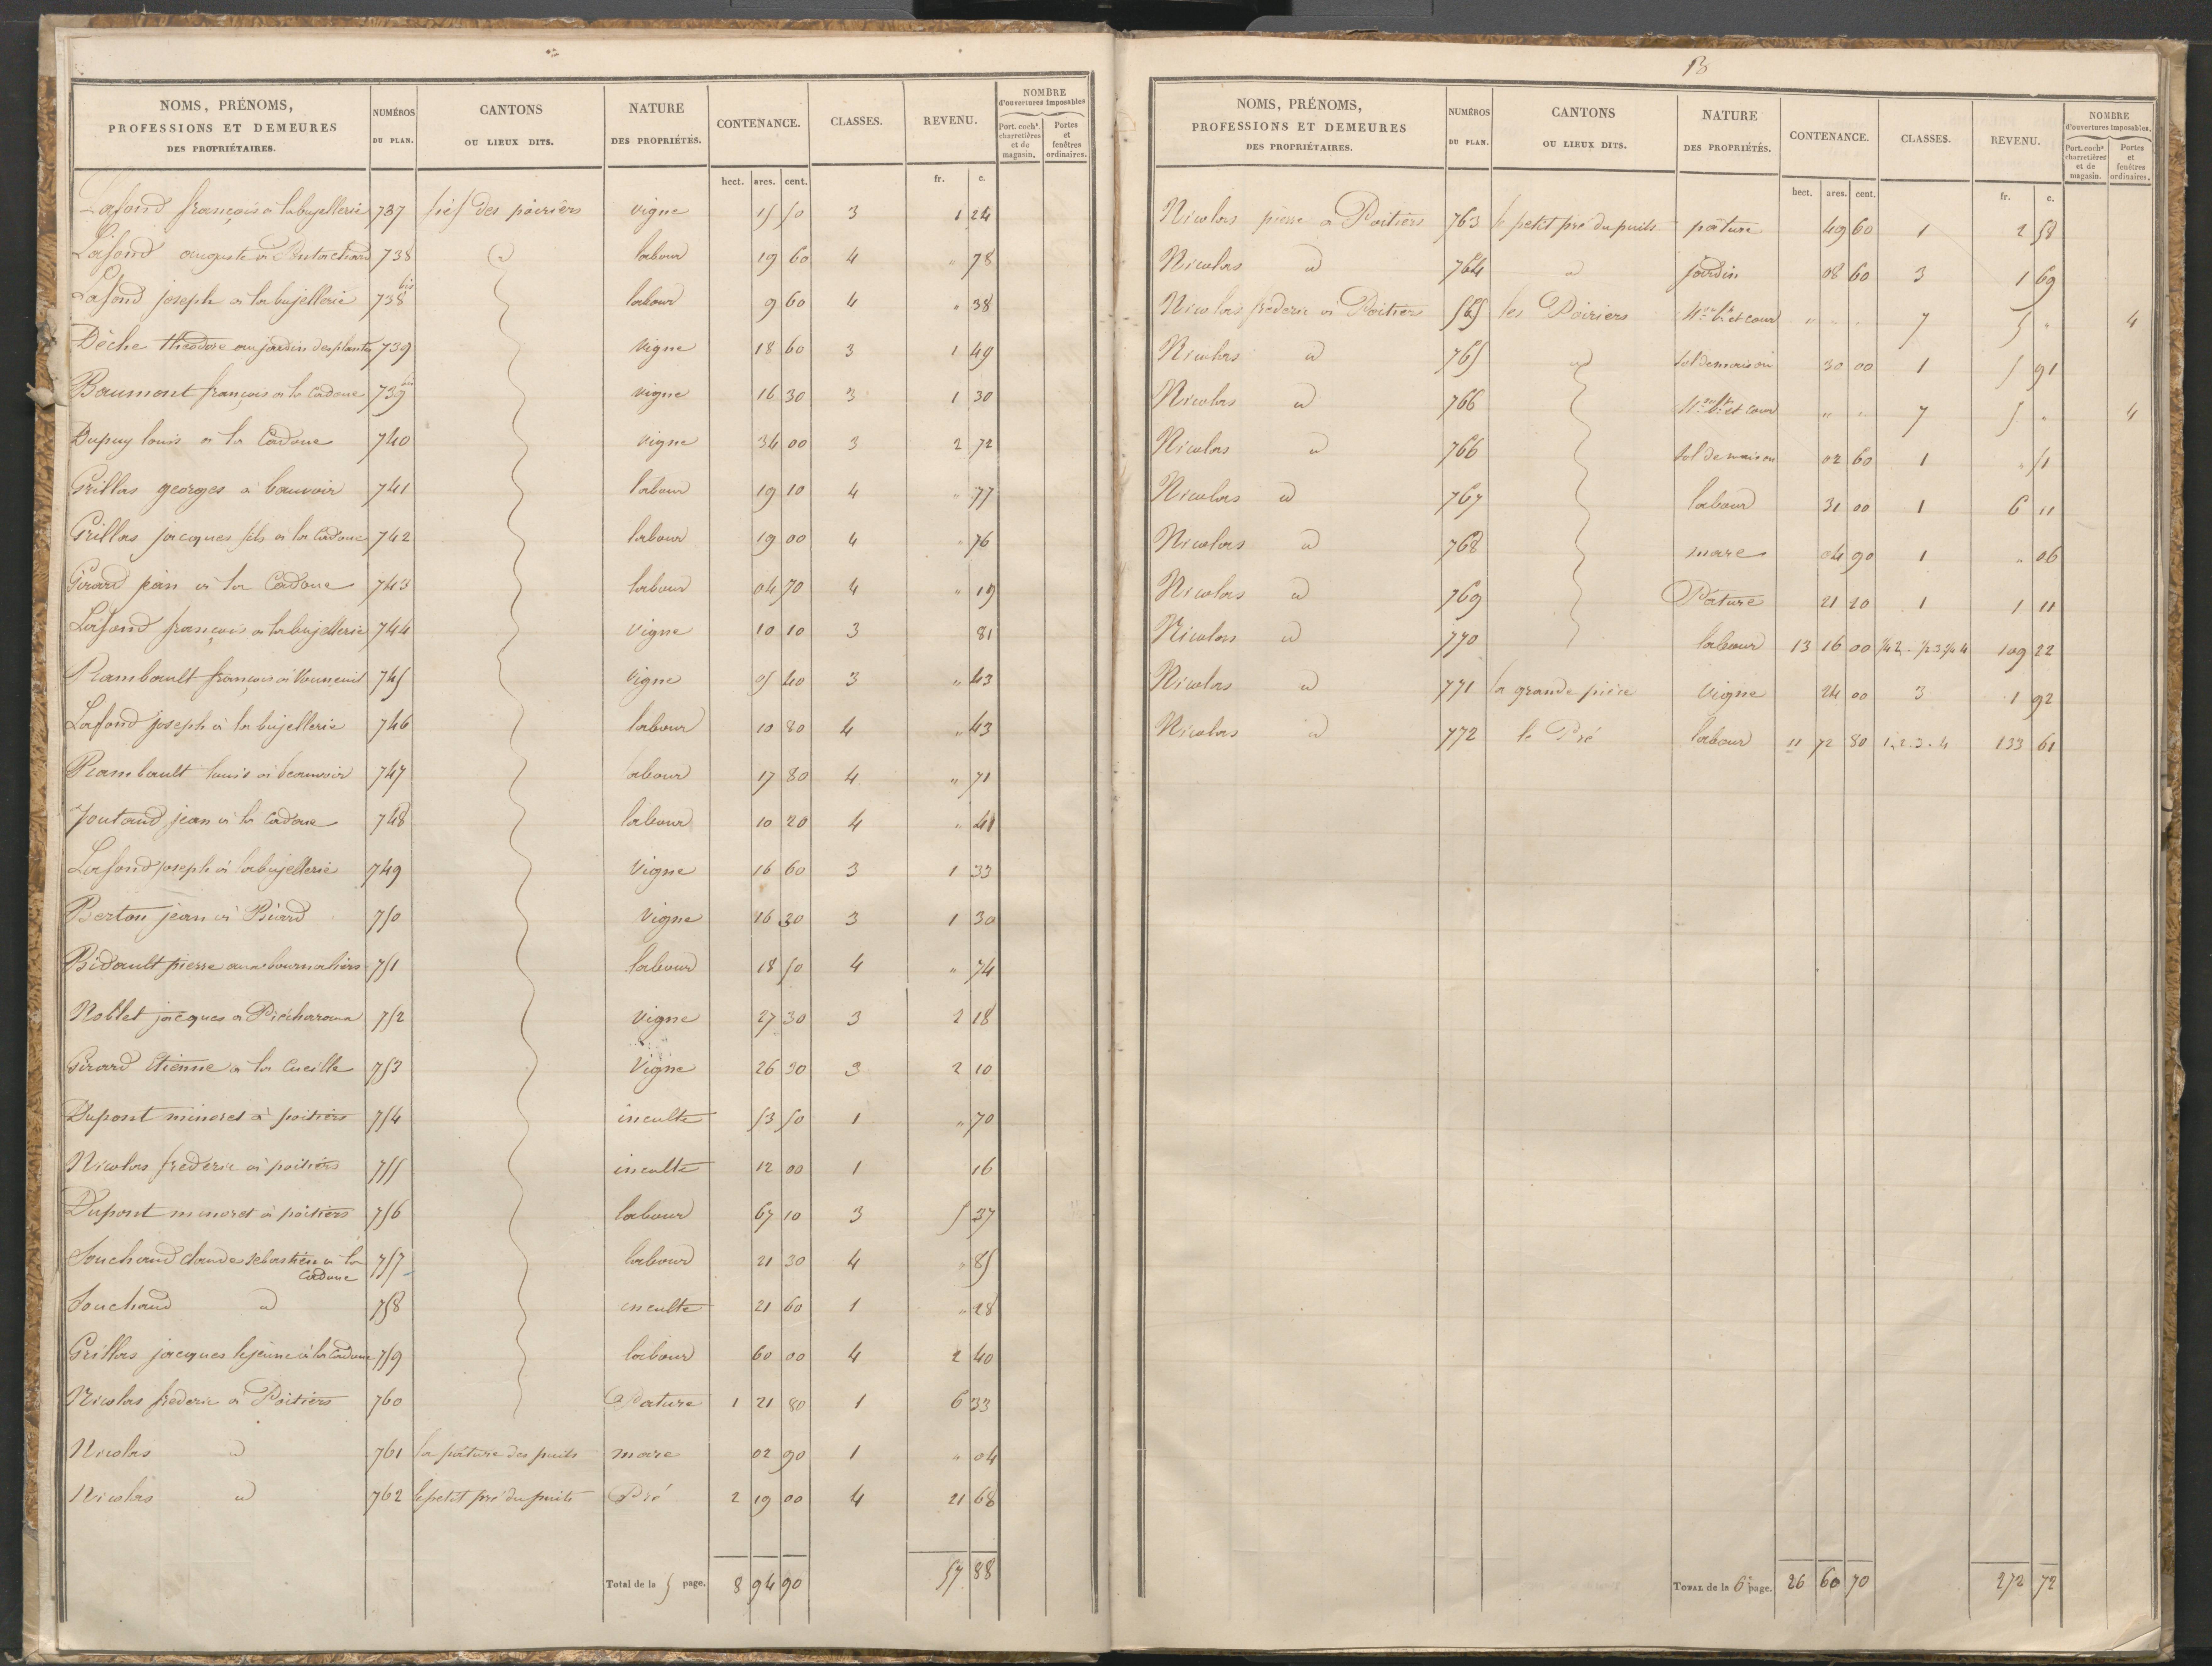 NOMS, PRÉNOMS, PROFESSIONS ET DEMEURES DES PROPRIÉTAIRES. NUMÉROS DU PLAN. CANTONS OU LIEUX DITS. NATURE DES PROPRIÉTÉS. CONTENANCE. CLASSES. REVENU. NOMBRE d'ouvertures imposables Port. coch^s charretières et de magasin. Portes et fenêtres ordinaires.
hect. ares. cent. fr. c.
Lafond françois à labujellerie 737 fief des poiriers vigne 15 50 3 1 24
Lafond auguste à 738 id labour 19 60 4 " 78
Lafond joseph à la bujellerie 738 bis labour 9 60 4 " 38
Dèche théodore au jardin des plantes 739 vigne 18 60 3 1 49
Baumont françois à la Cadoue 739 bis vigne 16 30 3 1 30
Dupuy louis à la Cadoue 740 vigne 34 00 3 2 72
Grillas georges à bauvoir 741 labour 19 10 4 " 77
Grillas jacques fils à la Cadoue 742 labour 19 00 4 " 76
Girard jean à la Cadoue 743 labour 04 70 4 " 19
Lafond françois à labujellerie 744 vigne 10 10 3 81
Rambault françois à Vouneuil 745 vigne 05 40 3 " 43
Lafond joseph à la bujellerie 746 labour 10 80 4 " 43
Rambault louis à beauvoir 747 labour 17 80 4 " 71
Joutaud jean à la Cadoue 748 labour 10 20 4 " 41
Lafond joseph à labujellerie 749 vigne 16 60 3 1 33
Berton jean à Biard 750 vigne 16 30 3 1 30
Bidault pierre aux bournaliers 751 labour 18 50 4 " 74
Noblet jacques à 752 vigne 27 30 3 2 18
Girard Etienne à la Cueille 753 Vigne 26 30 3 2 10
Dupont mineret à poitiers 754 inculte 53 50 1 " 70
Nicolas frederic à poitiers 755 inculte 12 00 1 16
Dupont mineret à poitiers 756 labour 67 10 3 5 37
Souchaud claude sebastien à la Cadoue 757 labour 21 30 4 " 85
Souchaud id 758 inculte 21 60 1 " 28
Grillas jacques lejeune à la Cadoue 759 labour 60 00 4 2 40
Nicolas frederic à Poitiers 760 Pature 1 21 80 1 6 33
Nicolas id 761 la pâture des puits mare 02 90 1 " 04
Nicolas id 762 le petit pré du puits Pré 2 19 00 4 21 68
Total de la 5 page. 8 94 90 57 88
NOMS, PRÉNOMS, PROFESSIONS ET DEMEURES DES PROPRIÉTAIRES. NUMÉROS DU PLAN. CANTONS OU LIEUX DITS. NATURE DES PROPRIÉTÉS. CONTENANCE. CLASSES. REVENU. NOMBRE d'ouvertures imposables. Port. coch^s charretières et de magasin. Portes et fenêtres ordinaires.
hect. ares. cent. fr. c.
Nicolas pierre à Poitiers 763 le petit pré du puits pâture 49 60 1 2 58
Nicolas id 764 id jardin 08 60 3 1 69
Nicolas frederic à Poitiers 565 les Poiriers M^on b^t et cour " " " 7 5 " 4
Nicolas id 765 id sol de maison 30 00 1 5 91
Nicolas id 766 M^on b^t et cour " " 7 5 " 4
Nicolas id 766 sol de maison 02 60 1 " 51
Nicolas id 767 labour 31 00 1 6 11
Nicolas id 768 mare 04 90 1 " 06
Nicolas id 769 Pature 21 20 1 1 11
Nicolas id 770 labour 13 16 00 109 22
Nicolas id 771 la grande pièce Vigne 24 00 3 1 92
Nicolas id 772 le Pré labour 11 72 80 1.2.3.4 133 61
TOTAL de la 6^e page. 26 60 70 272 72